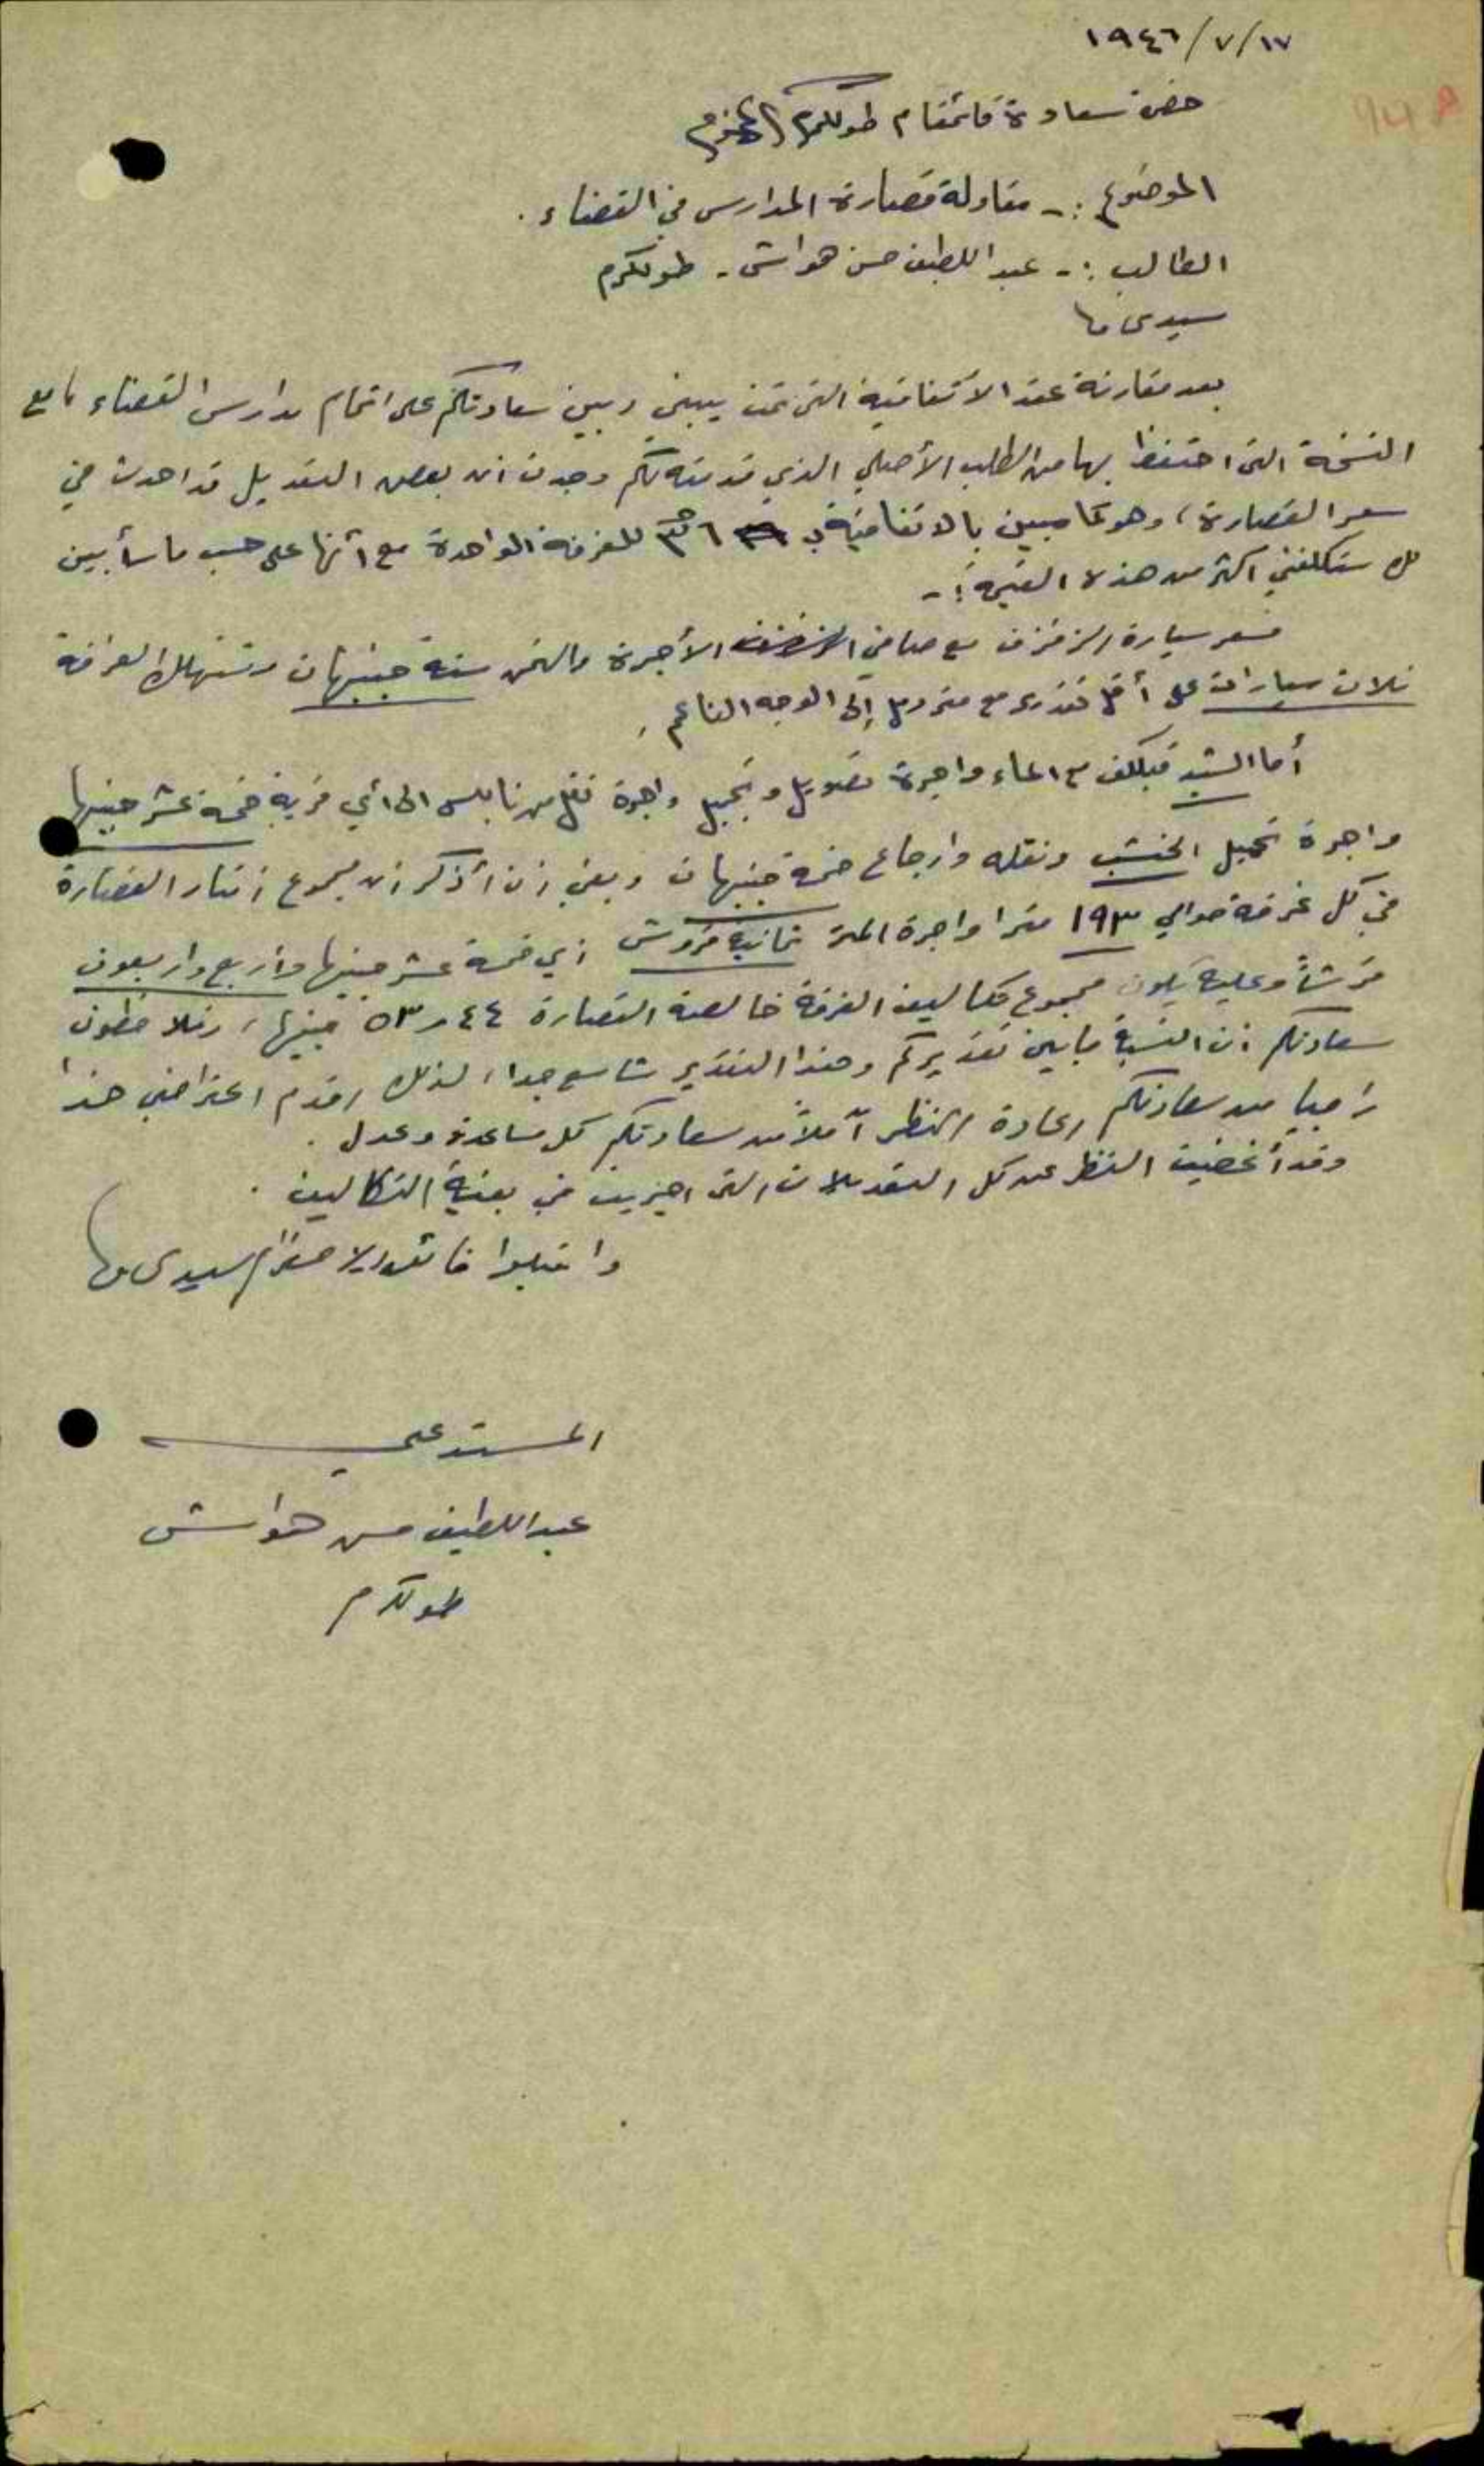 ١٩٤٦/٧/١٧
حضرة سعادة قائمقام طولكرم المحترم
الموضوع :- مقاولة قصارة المدارس في القضاء .
الطالب :- عبد اللطيف حسن هواش - طولكرم
سيدي
بعد مقارنة عقد الاتفاقية التي تمت بيني وبين سعادتكم على اتمام مدارس القضاء مع
النسخة التي احتفظ بها من الطلب الأصلي الذي قدمته لكم وجدت ان بعض التعديل قد احدث في
سعر القصارة، وهو كما مبين بالاتفاقية ٣٦ للغرفة الواحدة مع أنها على حسب ما سأبين
لك ستكلفني اكثر من هذه القيمة :-
فسعر سيارة الزفزف مع صافي الأجرة والثمن ستة جنيهات وتستهلك الغرفة
ثلاث سيارات على أقل تقدير مع رمل إلى الوجه الناعم .
أما الشيد فيكلف مع الماء واجرة تحويل وتجبيل واجرة نقل من نابلس الى أي قرية خمسة عشر جنيها
واجرة تحميل الخشب ونقله وارجاعه خمسة جنيهات وبقي ان أذكر ان مجموع امتار القصارة
في كل غرفة حوالي ١٩٣ مترا واجرة المتر ثمانية قروش اي خمسة عشر جنيها وأربع واربعون
قرشاً وعليه يكون مجموع تكاليف الغرفة خالصة القصارة ٥٣٫٤٤ جنيها، فتلاحظون
سعادتكم ان النسبة ما بين تقديركم وهذا التقدير شاسع جدا، لذلك اقدم اعتراضي هذا
راجيا من سعادتكم اعادة النظر آملاً من سعادتكم كل مساعدة وعدل .
وقد أغضيت النظر عن كل التعديلات التي اجريت في بقية التكاليف .
واقبلوا فائق الاحترام سيدي
المستدعي
عبد اللطيف حسن هواش
طولكرم